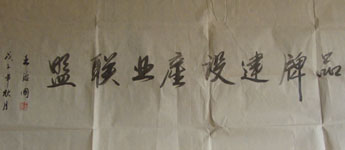 品牌建设產业联盟
戊子年秋月